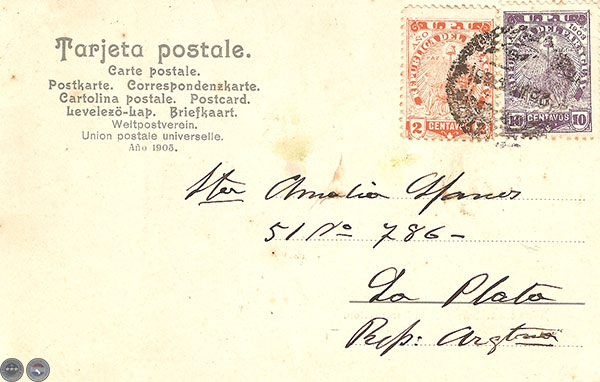 Tarjeta postale.
Carte postale.
Postkarte. Correspondenzkarte.
Cartolina postale. Postcard.
Levelezö-Lap. Briefkaart.
Weltpostverein.
Union postale universelle.
Año 1905.
AÑO
REPUBLICA DEL
2 CENTAVOS 2
1903
REPUBLICA DEL PARAGUAY
10 CENTAVOS 10
Sta Amalia
51 No 786-
La Plata
Rep: Argtna